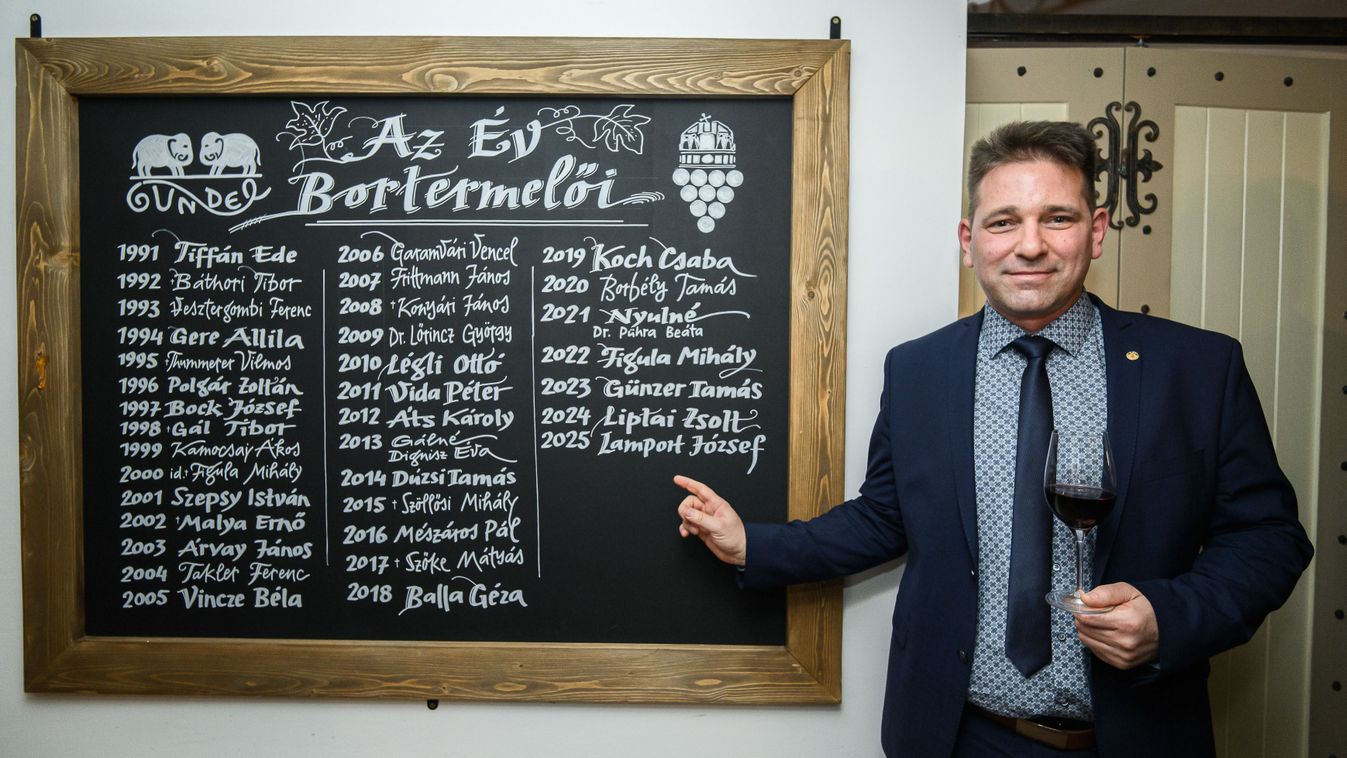 GUNDEL
Az Év
Bortermelői
1991 Tiffán Ede
1992 †Báthori Tibor
1993 Vesztergombi Ferenc
1994 Gere Attila
1995 †Thummerer Vilmos
1996 Polgár Zoltán
1997 Bock József
1998 †Gál Tibor
1999 Kamocsay Ákos
2000 id.†Figula Mihály
2001 Szepsy István
2002 †Malya Ernő
2003 Árvay János
2004 Takler Ferenc
2005 Vincze Béla
2006 Garamvári Vencel
2007 Frittmann János
2008 †Konyári János
2009 Dr. Lőrincz György
2010 Légli Ottó
2011 Vida Péter
2012 Áts Károly
2013 Gálné
Dignisz Éva
2014 Dúzsi Tamás
2015 †Szöllősi Mihály
2016 Mészáros Pál
2017 †Szőke Mátyás
2018 Balla Géza
2019 Koch Csaba
2020 Borbély Tamás
2021 Nyulné
Dr. Pühra Beáta
2022 Figula Mihály
2023 Günzer Tamás
2024 Liptai Zsolt
2025 Lamport József